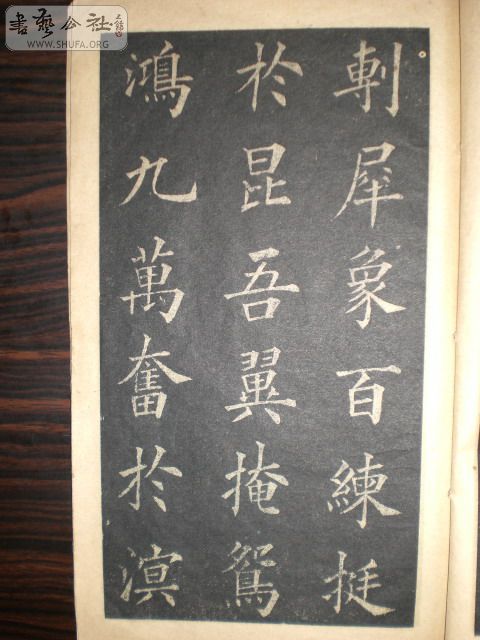 書藝公社
WWW.SHUFA.ORG
剸犀象百練挺
於昆吾翼掩鴛
鴻九萬奮於溟